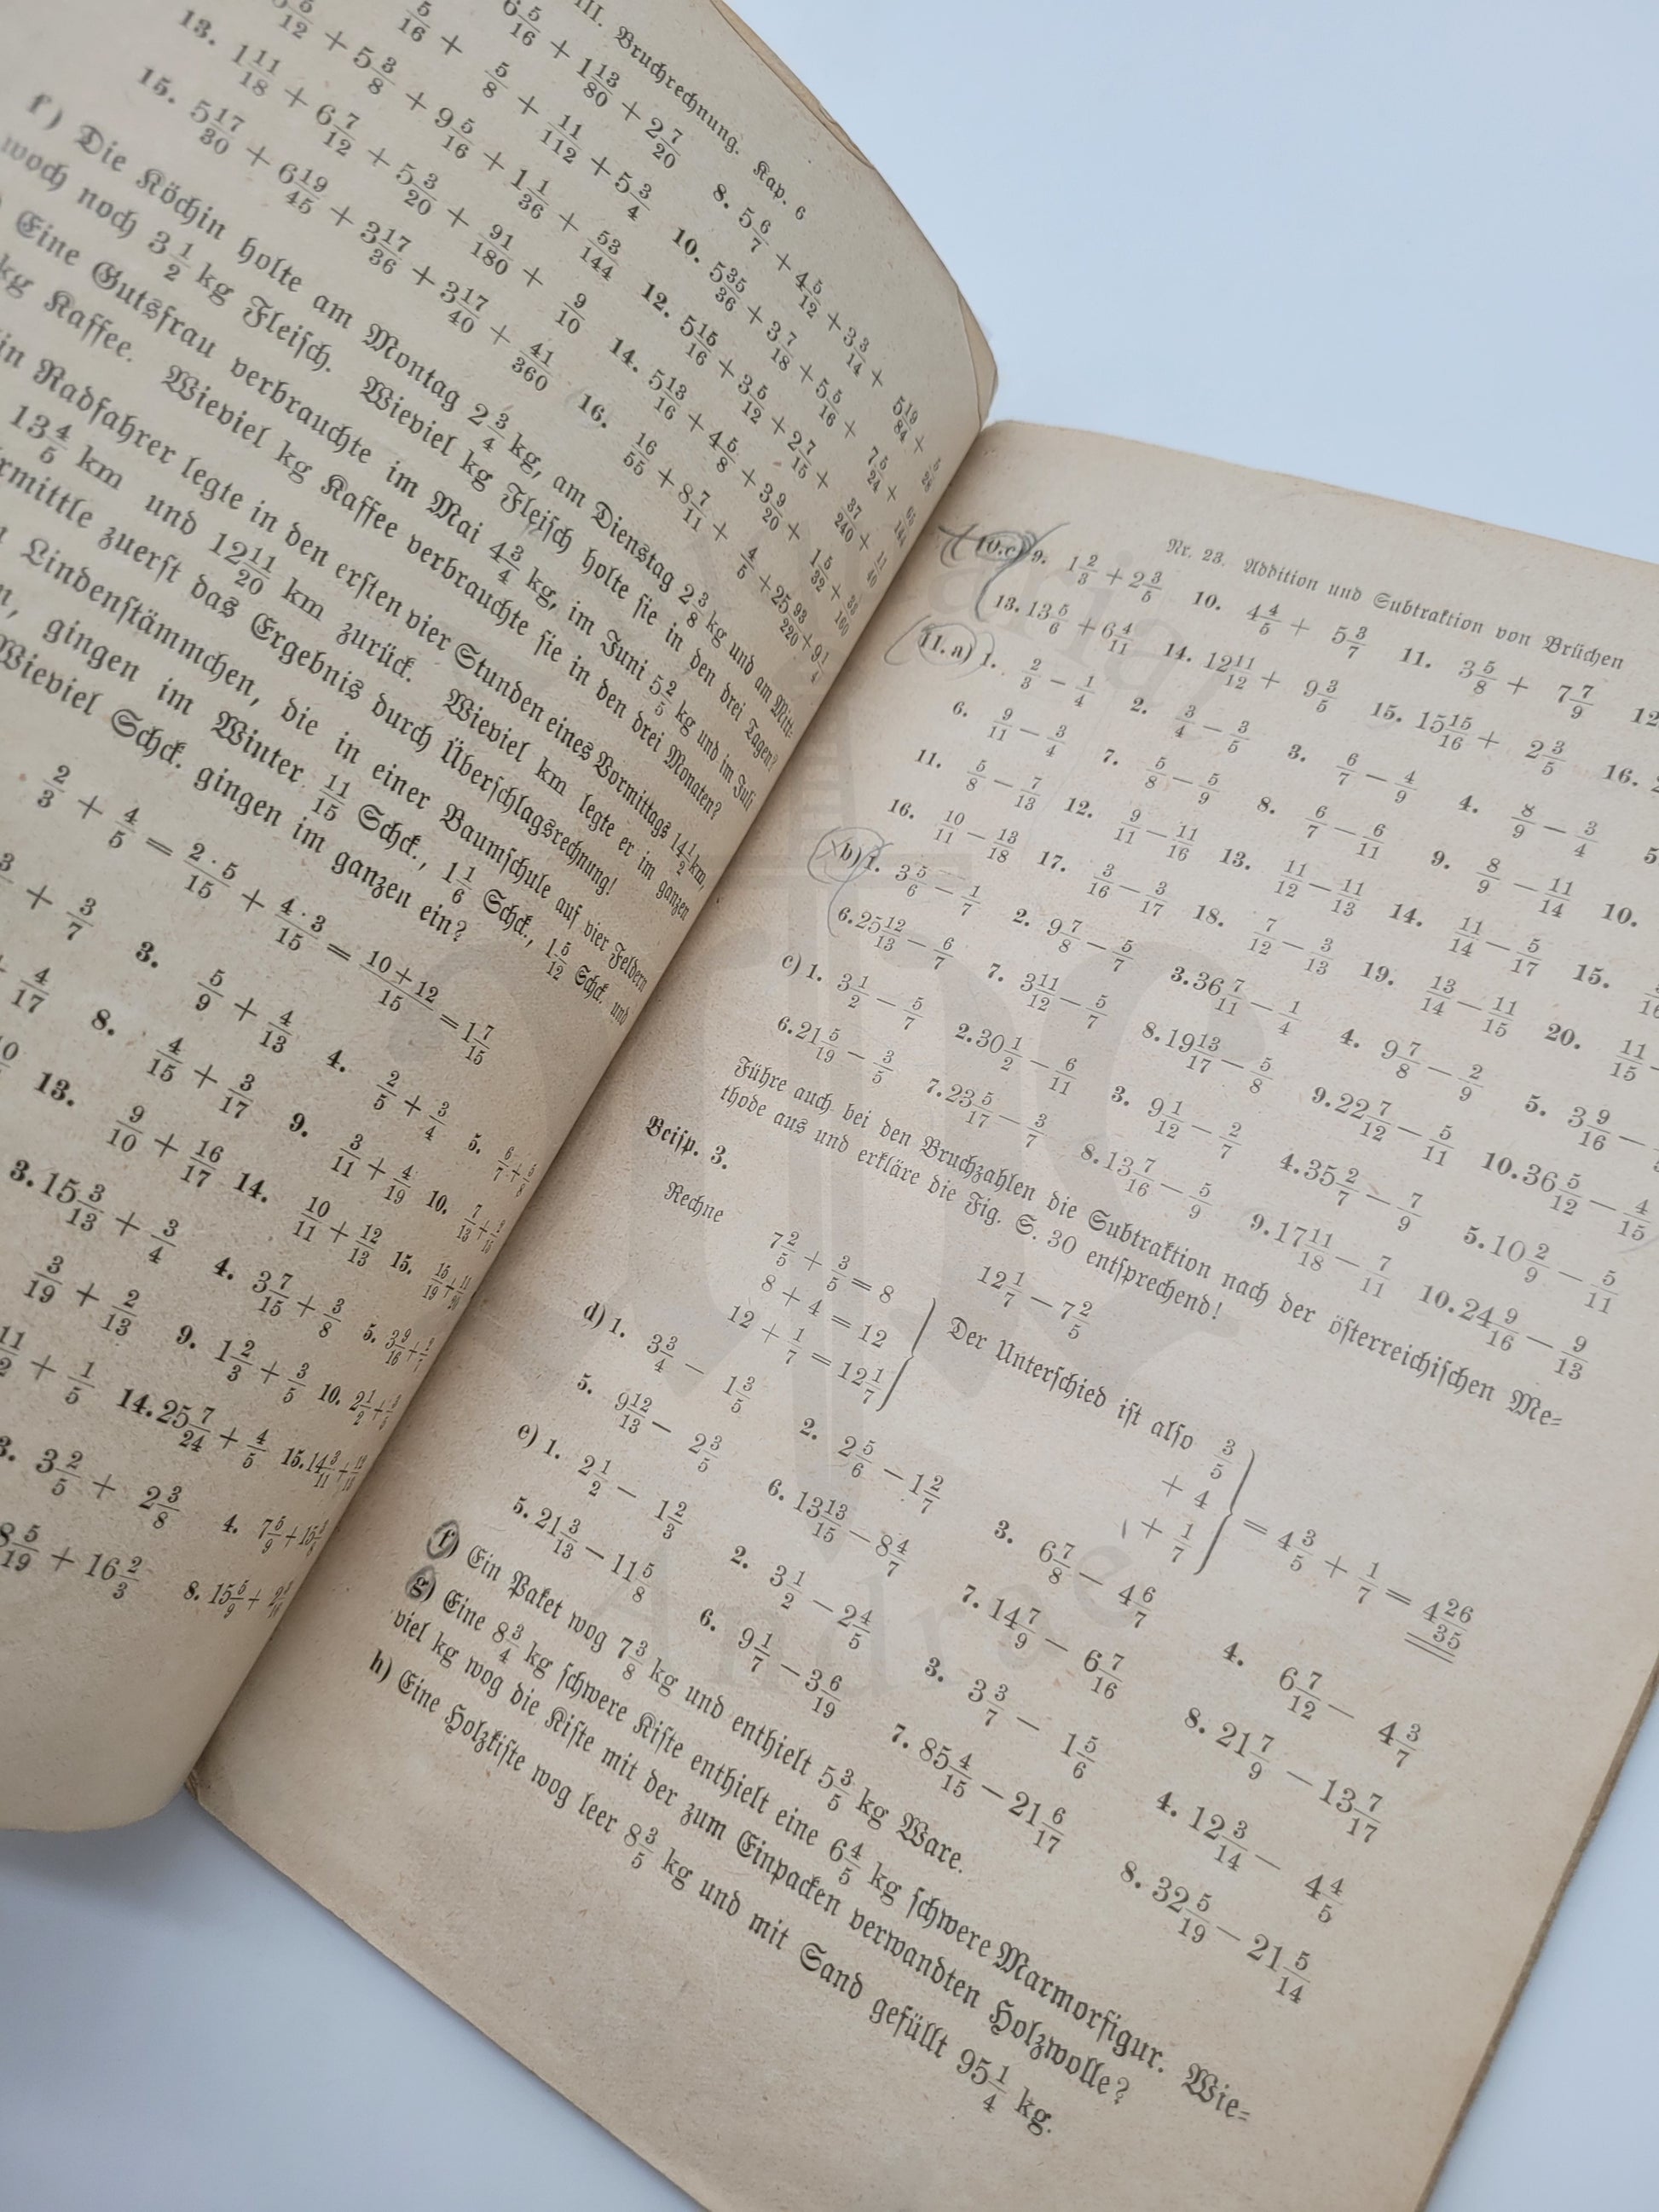 III. Bruchrechnung. Kap. 6
6 5/16 + 1 13/80 + 2 7/20 8. 5 6/7 + 4 5/12 + 3 3/14 + 5 19/84 +
5/16 + 5/8 + 11/112 + 5 3/4 10. 5 35/36 + 3 7/18 + 5 5/16 + 7 5/24 +
5/12 + 5 3/8 + 9 5/16 + 1 1/36 + 53/144 12. 5 15/16 + 3 5/12 + 2 7/15 + 37/240 +
13. 1 11/18 + 6 7/12 + 5 3/20 + 91/180 + 9/10 14. 5 13/16 + 4 5/8 + 3 9/20 + 1 5/32 +
15. 5 17/30 + 6 19/45 + 3 17/36 + 3 17/40 + 41/360 16. 16/55 + 8 7/11 + 4/5 + 25 93/220 + 9 1/4
f) Die Köchin holte am Montag 2 3/4 kg, am Dienstag 2 3/8 kg und am Mitt-
woch noch 3 1/2 kg Fleiſch. Wieviel kg Fleiſch holte ſie in den drei Tagen?
Eine Gutsfrau verbrauchte im Mai 4 3/4 kg, im Juni 5 2/5 kg und im Juli
kg Kaffee. Wieviel kg Kaffee verbrauchte ſie in den drei Monaten?
Radfahrer legte in den erſten vier Stunden eines Vormittags 14 1/2 km,
13 4/5 km und 12 11/20 km zurück. Wieviel km legte er im ganzen
zuerſt das Ergebnis durch Überſchlagsrechnung!
Lindenſtämmchen, die in einer Baumſchule auf vier Feldern
gingen im Winter 11/15 Schck., 1 1/6 Schck., 1 5/12 Schck. und
Wieviel Schck. gingen im ganzen ein?
2/3 + 4/5 = 2·5/15 + 4·3/15 = 10+12/15 = 1 7/15
+ 3/7 3. 5/9 + 4/13 4. 2/5 + 3/4 5. 6/7 + 5/8
+ 4/17 8. 4/15 + 3/17 9. 3/11 + 4/19 10.
13. 9/10 + 16/17 14. 10/11 + 12/13 15.
3. 15 3/13 + 3/4 4. 3 7/15 + 3/8 5.
3/19 + 2/13 9. 1 2/3 + 3/5 10.
+ 1/5 14. 25 7/24 + 4/5 15.
3. 3 2/5 + 2 3/8 4.
8 5/19 + 16 2/3 8.
Nr. 23. Addition und Subtraktion von Brüchen
10.c) 9. 1 2/3 + 2 3/5 10. 4 4/5 + 5 3/7 11. 3 5/8 + 7 7/9 12.
13. 13 5/6 + 6 4/11 14. 12 11/12 + 9 3/5 15. 15 15/16 + 2 3/5 16.
11. a) 1. 2/3 − 1/4 2. 3/4 − 3/5 3. 6/7 − 4/9 4. 8/9 − 3/4 5.
6. 9/11 − 3/4 7. 5/8 − 5/9 8. 6/7 − 6/11 9. 8/9 − 11/14 10.
11. 5/8 − 7/13 12. 9/11 − 11/16 13. 11/12 − 11/13 14. 11/14 − 5/17 15.
16. 10/11 − 13/18 17. 3/16 − 3/17 18. 7/12 − 3/13 19. 13/14 − 11/15 20. 11/15 −
b) 1. 3 5/6 − 1/7 2. 9 7/8 − 5/7 3. 36 7/11 − 1/4 4. 9 7/8 − 2/9 5. 3 9/16 −
6. 25 12/13 − 6/7 7. 3 11/12 − 5/7 8. 19 13/17 − 5/8 9. 22 7/12 − 5/11 10. 36 5/12 − 4/15
c) 1. 3 1/2 − 5/7 2. 30 1/2 − 6/11 3. 9 1/12 − 2/7 4. 35 2/7 − 7/9 5. 10 2/9 − 5/11
6. 21 5/19 − 3/5 7. 23 5/17 − 3/7 8. 13 7/16 − 5/9 9. 17 11/18 − 7/11 10. 24 9/16 − 9/13
Führe auch bei den Bruchzahlen die Subtraktion nach der öſterreichiſchen Me-
thode aus und erkläre die Fig. S. 30 entſprechend!
Beiſp. 3.
Rechne 12 1/7 − 7 2/5
7 2/5 + 3/5 = 8
8 + 4 = 12
12 + 1/7 = 12 1/7
Der Unterſchied iſt alſo 3/5
+ 4
+ 1/7
= 4 3/5 + 1/7 = 4 26/35
d) 1. 3 3/4 − 1 3/5 2. 2 5/6 − 1 2/7 3. 6 7/8 − 4 6/7 4. 6 7/12 − 4 3/7
5. 9 12/13 − 2 3/5 6. 13 13/15 − 8 4/7 7. 14 7/9 − 6 7/16 8. 21 7/9 − 13 7/17
e) 1. 2 1/2 − 1 2/3 2. 3 1/2 − 2 4/5 3. 3 3/7 − 1 5/6 4. 12 3/14 − 4 4/5
5. 21 3/13 − 11 5/8 6. 9 1/7 − 3 6/19 7. 85 4/15 − 21 6/17 8. 32 5/19 − 21 5/14
f) Ein Paket wog 7 3/8 kg und enthielt 5 3/5 kg Ware.
g) Eine 8 3/4 kg ſchwere Kiſte enthielt eine 6 4/5 kg ſchwere Marmorfigur. Wie-
viel kg wog die Kiſte mit der zum Einpacken verwandten Holzwolle?
h) Eine Holzkiſte wog leer 8 3/5 kg und mit Sand gefüllt 95 1/4 kg.